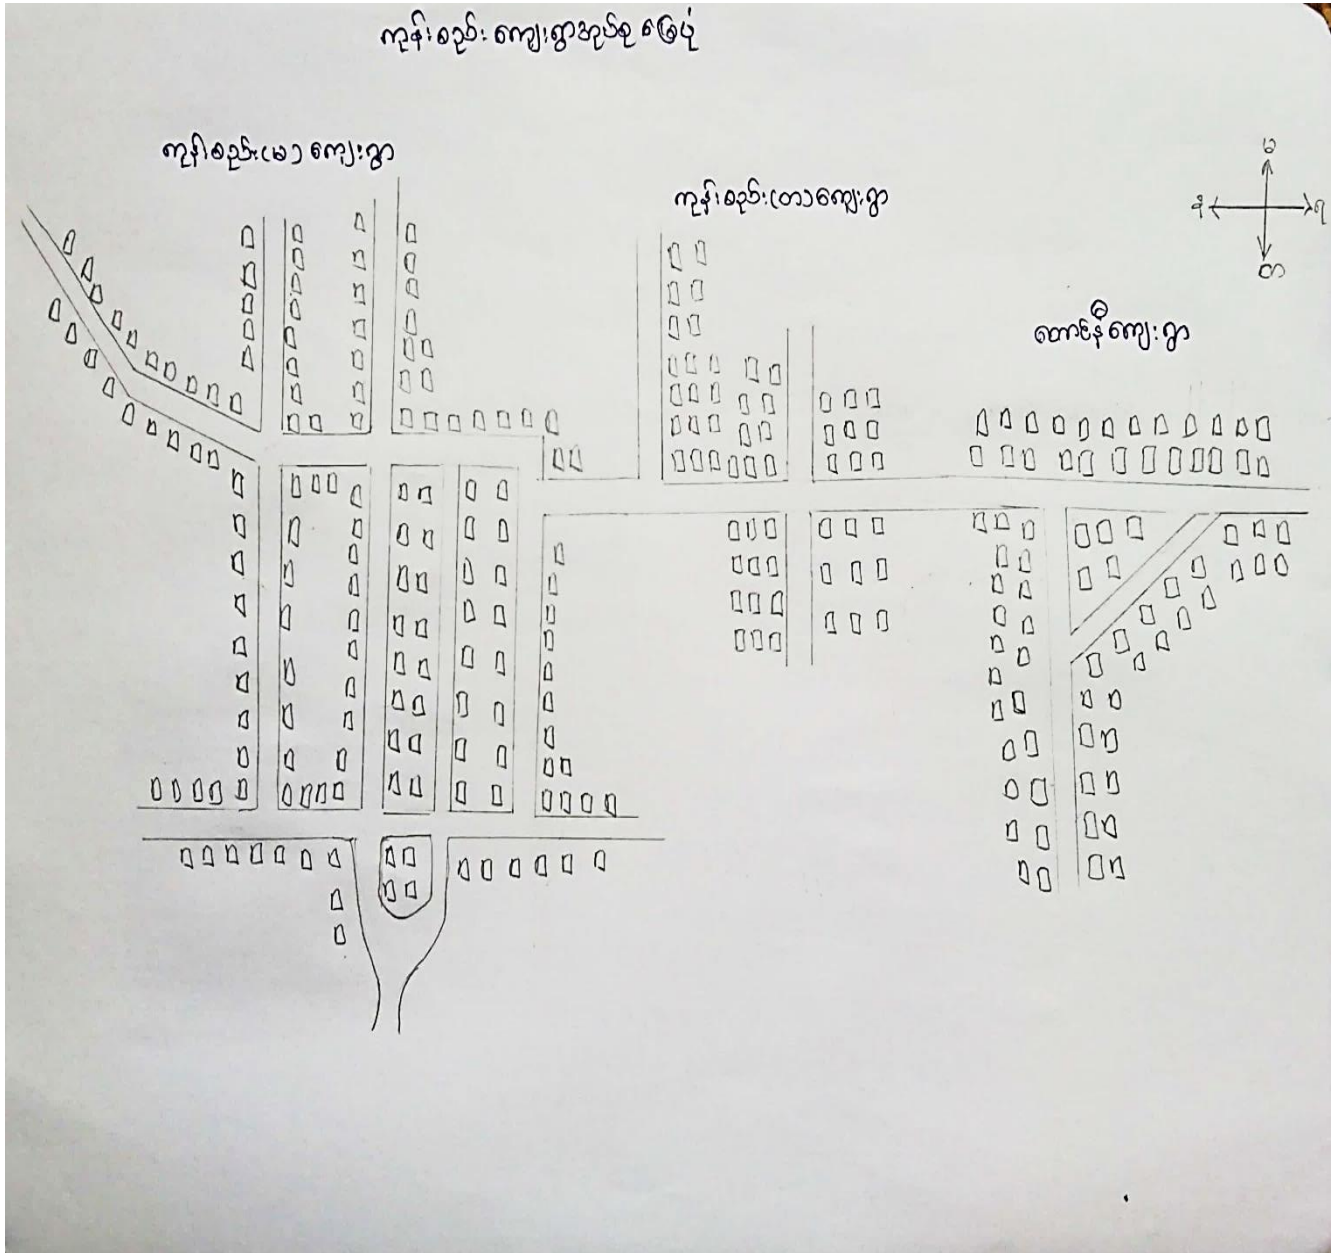 ကုန်းစည်းကျေးရွာအုပ်စု မြေပုံ
ကုန်းစည်း(မ)ကျေးရွာ
ကုန်းစည်း(တ)ကျေးရွာ
မ
န
ရ
တ
တောင်နီကျေးရွာ